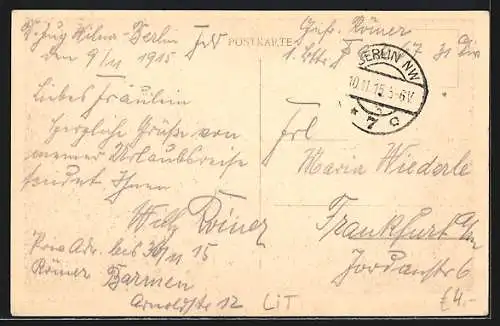 Zug Wilna-Berlin
den 9/11 1915
Liebes Fräulein
herzliche Grüße von
meiner Urlaubsreise
sendet Ihnen
Willy Römer
Adr. bis 30/11 15
Römer Barmen
Arnoldstr 12
LiT
POSTKARTE
Römer
67
BERLIN NW
10.11.15.5-6V.
* 7 c
Frl
Maria Wiederle
Frankfurt a/m
Jordanstr 6
£4.-